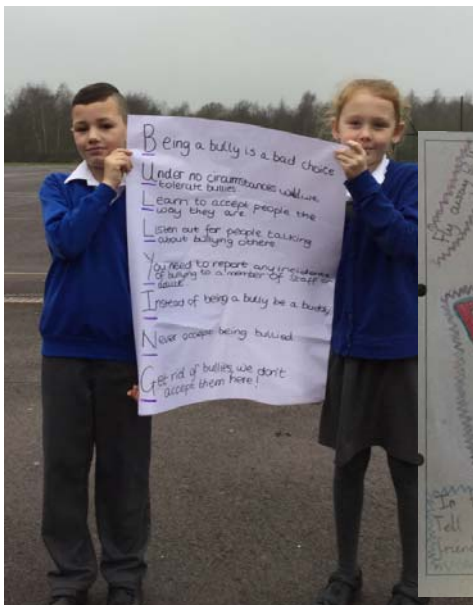 Being a bully is a bad choice
Under no circumstances will we
tolerate bullies.
Learn to accept people the
way they are.
Listen out for people talking
about bullying others
You need to report any incidents
of bullying to a member of staff or
adult
Instead of being a bully be a buddy
Never accept being bullied
Get rid of bullies, we don't
accept them here!
Fly away
In
Tell
friend